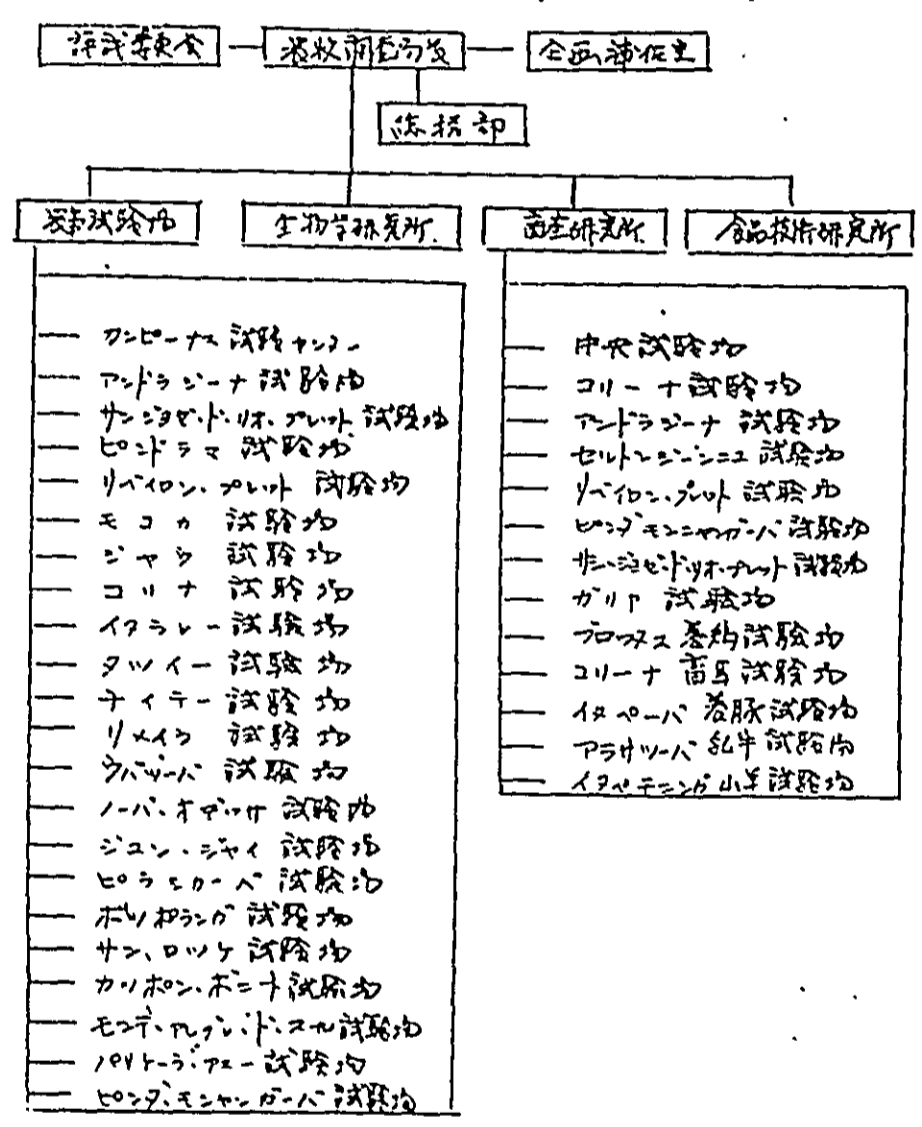 評議委員会
農牧調査局長
企画補佐室
総務部
農事試験場
生物学研究所
畜産研究所
食品技術研究所
カンピーナス 試験センター
アンドラジーナ 試験場
サンジョゼ・ド・リオ・プレット 試験場
ピンドラマ 試験場
リベイロン、プレット 試験場
モコカ 試験場
ジャウ 試験場
コリナ 試験場
イタラレー 試験場
タツイー 試験場
チィテー 試験場
リメイラ 試験場
ウバツーバ 試験場
ノーバ・オデッサ 試験場
ジュン・ジャイ 試験場
ピラシカーバ 試験場
ボツポランガ 試験場
サン、ロッケ 試験場
カツポン・ボニート 試験場
モンテ・アレグレ・ド・スール 試験場
パリケーラ・アスー 試験場
ピンダ、モンャンガーバ 試験場
中央試験場
コリーナ試験場
アンドラジーナ 試験場
セルトンジーンニュ 試験場
リベイロン、プレット 試験場
ピンダモンニャンガーバ 試験場
サン・ジョゼ・ド・リオ・プレット 試験場
ガリア 試験場
ブロタス 養鶏試験場
コリーナ 畜馬試験場
イタペーバ 養豚試験場
アラサツーバ 乳牛試験場
イタペテニンガ 山羊試験場